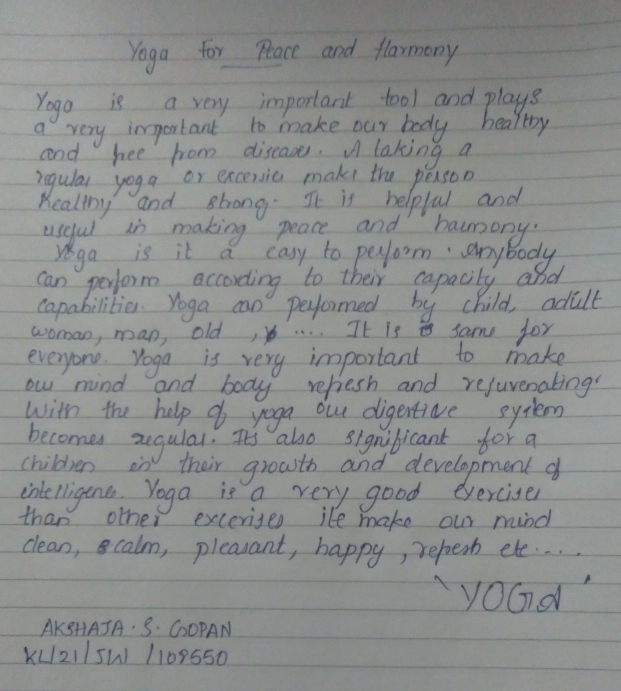 Yoga for Peace and Harmony
Yoga is a very important tool and plays
a very important to make our body healthy
and free from diseases. A taking a
regular yoga or excersies make the person
healthy and strong. It is helpful and
useful in making peace and harmony.
Yoga is it a easy to perform. Anybody
can perform according to their capacity and
capabilities. Yoga can performed by child, adult
woman, man, old , .... It is same for
everyone. Yoga is very important to make
our mind and body refresh and rejuvenating.
With the help of yoga our digestive system
becomes regular. Its also significant for a
children in their growth and development of
intelligence. Yoga is a very good exercises
than other excerises ite make our mind
clean, calm, pleasant, happy , refresh etc.....
'YOGA'
AKSHAJA . S. GOPAN
KL/21/SW/109550